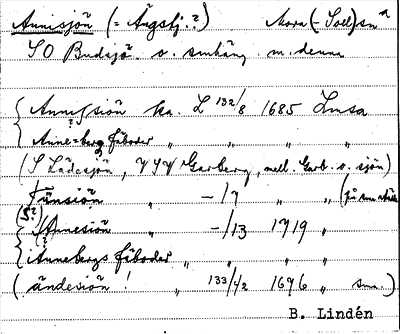 Annisjön (= Ängstj.?) Mora (- Soll)sn
SO Budsjö. o. smhäng m. denna
Annissiön ka. L 132/8 1685 Lmsa
Annebergs fäboder " " " "
(S Lädesjön, VSV Garberg, mell. Garb. o. sjön)
Tänsiön " -/7 " "
(S?) Annesiön " -/13 1719 "
Annebergs fäboder " " " "
(ändesiön ! " 133/1/2 1696 " smn.)
B. Lindén